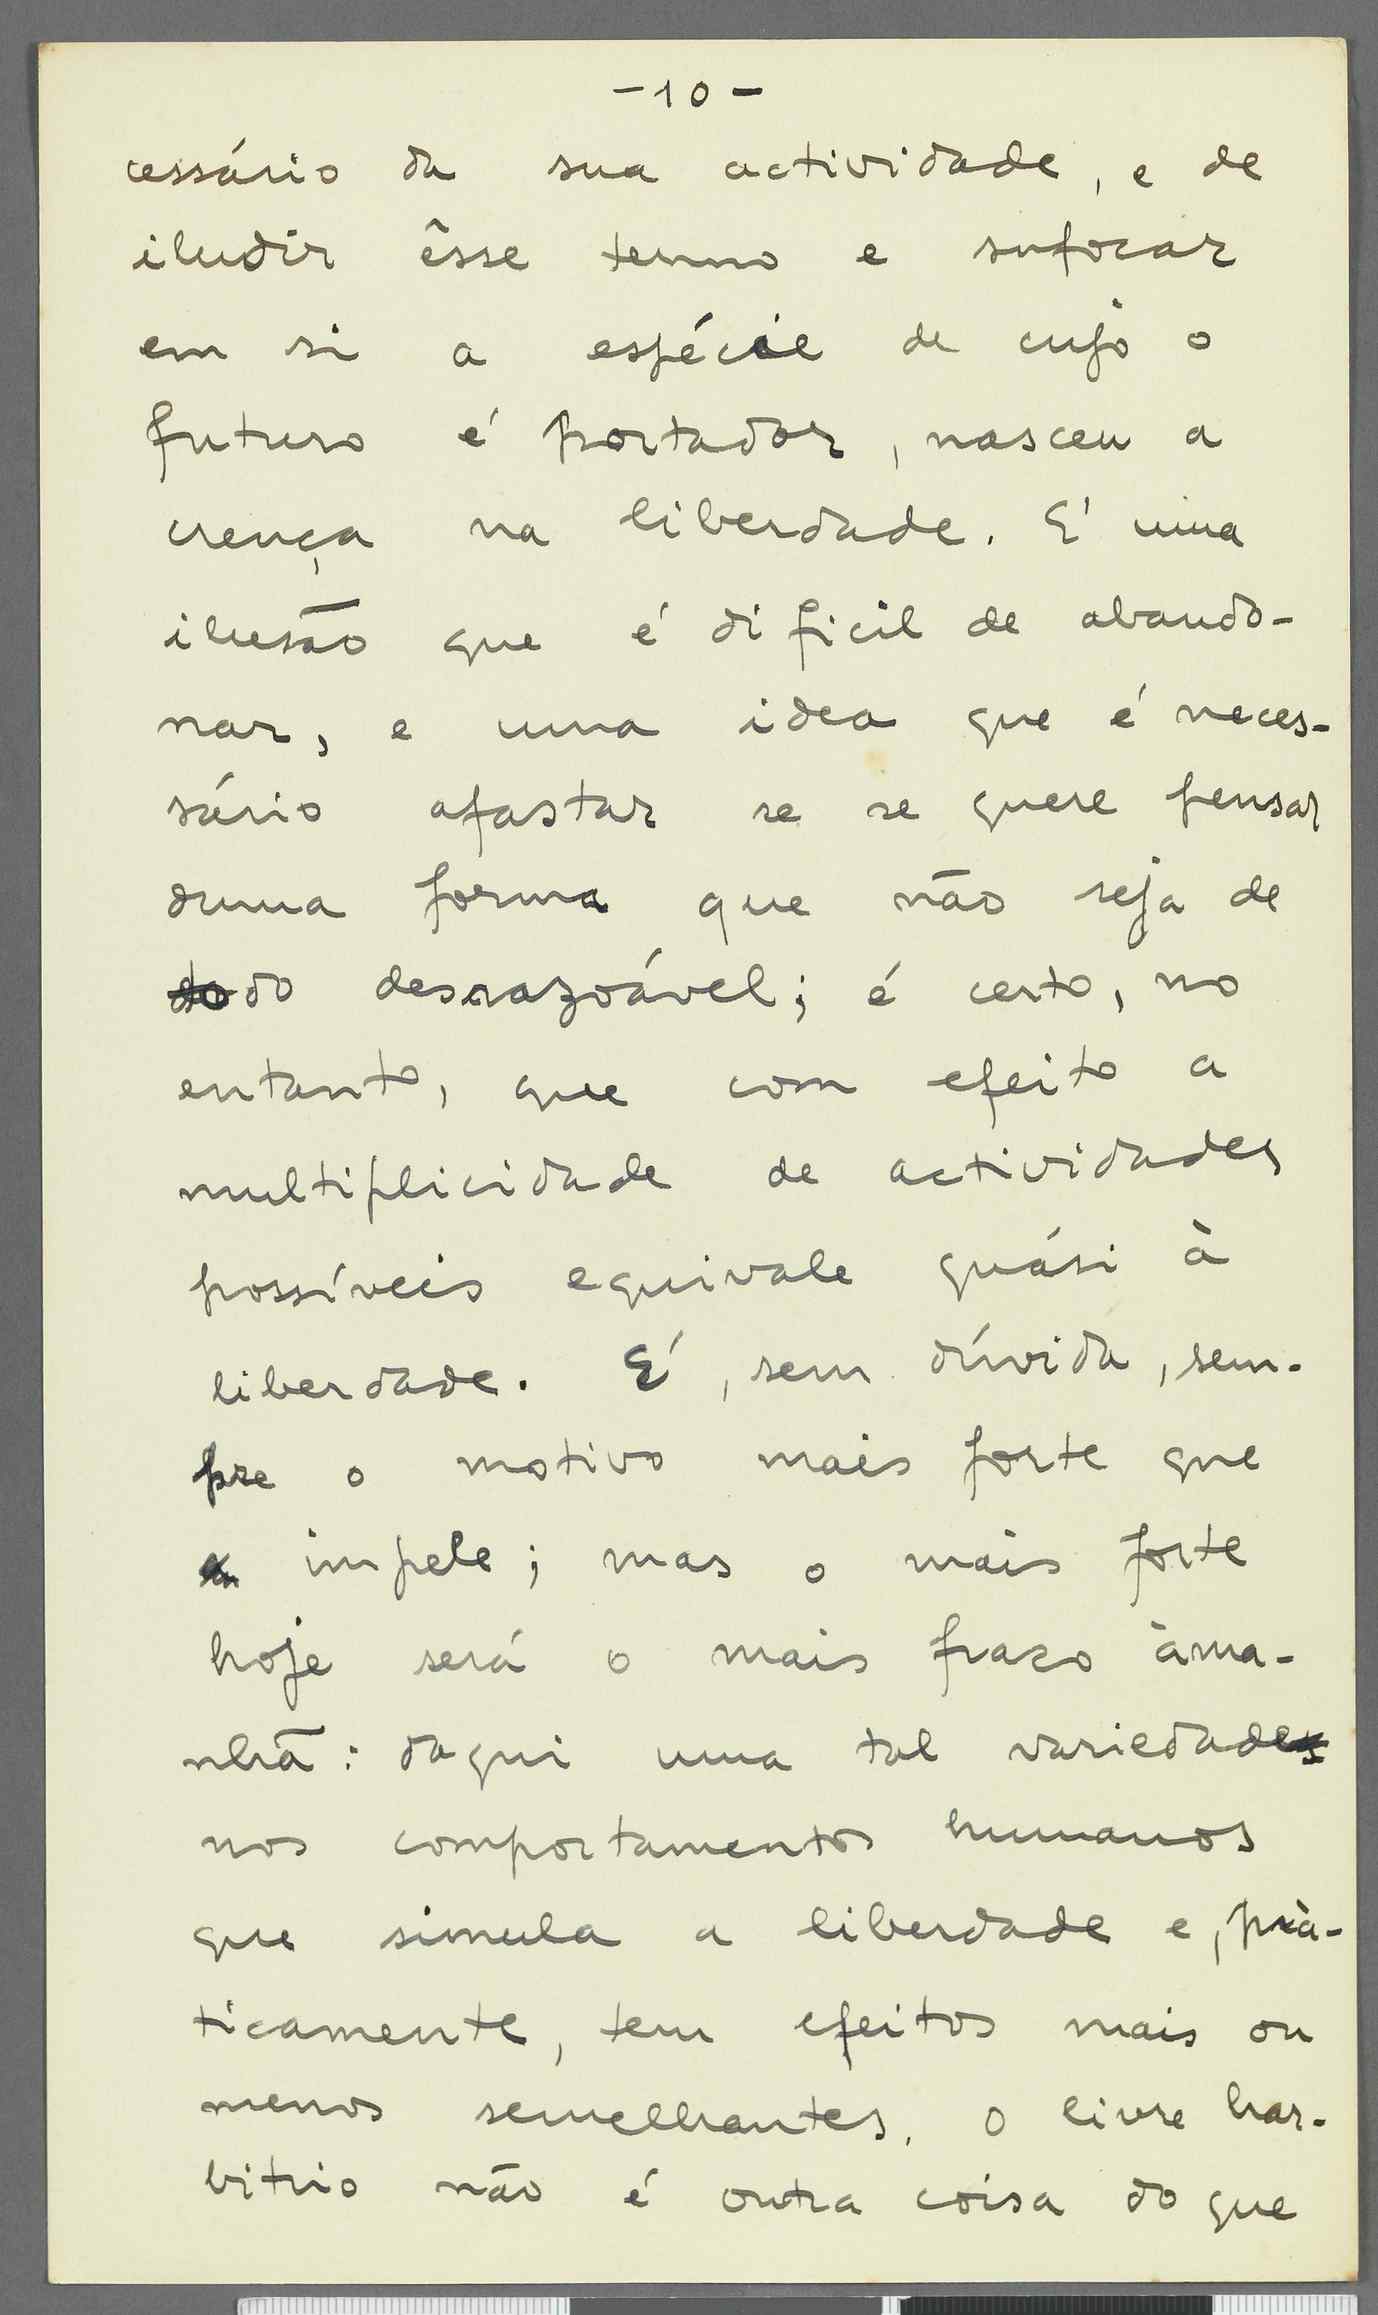 -10-
cessário da sua actividade, e de
iludir êsse termo e sufocar
em si a espécie de cujo o
futuro é portador, nasceu a
crença na liberdade. É uma
ilusão que é dificil de abando-
nar, e uma idea que é neces-
sário afastar se se quere pensar
duma forma que não seja de
do desrazoável; é certo, no
entanto, que com efeito a
multiplicidade de actividades
possíveis equivale quási à
liberdade. É, sem dúvida, sem-
pre o motivo mais forte que
impele; mas o mais forte
hoje será o mais fraco àma-
nhã: daqui uma tal variedade
nos comportamentos humanos
que simula a liberdade e, prà-
ticamente, tem efeitos mais ou
menos semelhantes. O livre har-
bitrio não é outra coisa do que